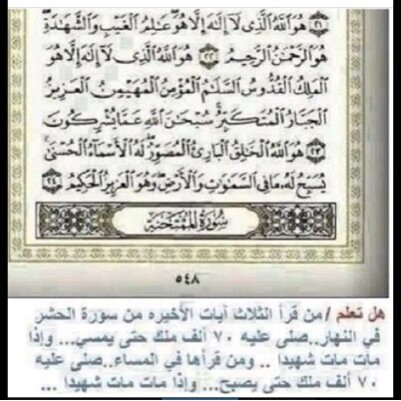 ﴿٢١﴾ هُوَ ٱللَّهُ ٱلَّذِى لَآ إِلَٰهَ إِلَّا هُوَ ۖ عَٰلِمُ ٱلْغَيْبِ وَٱلشَّهَٰدَةِ ۖ
هُوَ ٱلرَّحْمَٰنُ ٱلرَّحِيمُ ﴿٢٢﴾ هُوَ ٱللَّهُ ٱلَّذِى لَآ إِلَٰهَ إِلَّا هُوَ
ٱلْمَلِكُ ٱلْقُدُّوسُ ٱلسَّلَٰمُ ٱلْمُؤْمِنُ ٱلْمُهَيْمِنُ ٱلْعَزِيزُ
ٱلْجَبَّارُ ٱلْمُتَكَبِّرُ ۚ سُبْحَٰنَ ٱللَّهِ عَمَّا يُشْرِكُونَ
﴿٢٣﴾ هُوَ ٱللَّهُ ٱلْخَٰلِقُ ٱلْبَارِئُ ٱلْمُصَوِّرُ ۖ لَهُ ٱلْأَسْمَآءُ ٱلْحُسْنَىٰ ۚ
يُسَبِّحُ لَهُۥ مَا فِى ٱلسَّمَٰوَٰتِ وَٱلْأَرْضِ ۖ وَهُوَ ٱلْعَزِيزُ ٱلْحَكِيمُ ﴿٢٤﴾
سُورَةُ ٱلْمُمْتَحَنَةِ
٥٤٨
هل تعلم / من قرأ الثلاث آيات الأخيره من سورة الحشر
في النهار..صلى عليه ٧٠ ألف ملك حتى يمسي... وإذا
مات مات شهيدا .. ومن قرأها في المساء..صلى عليه
٧٠ ألف ملك حتى يصبح... وإذا مات مات شهيدا ...